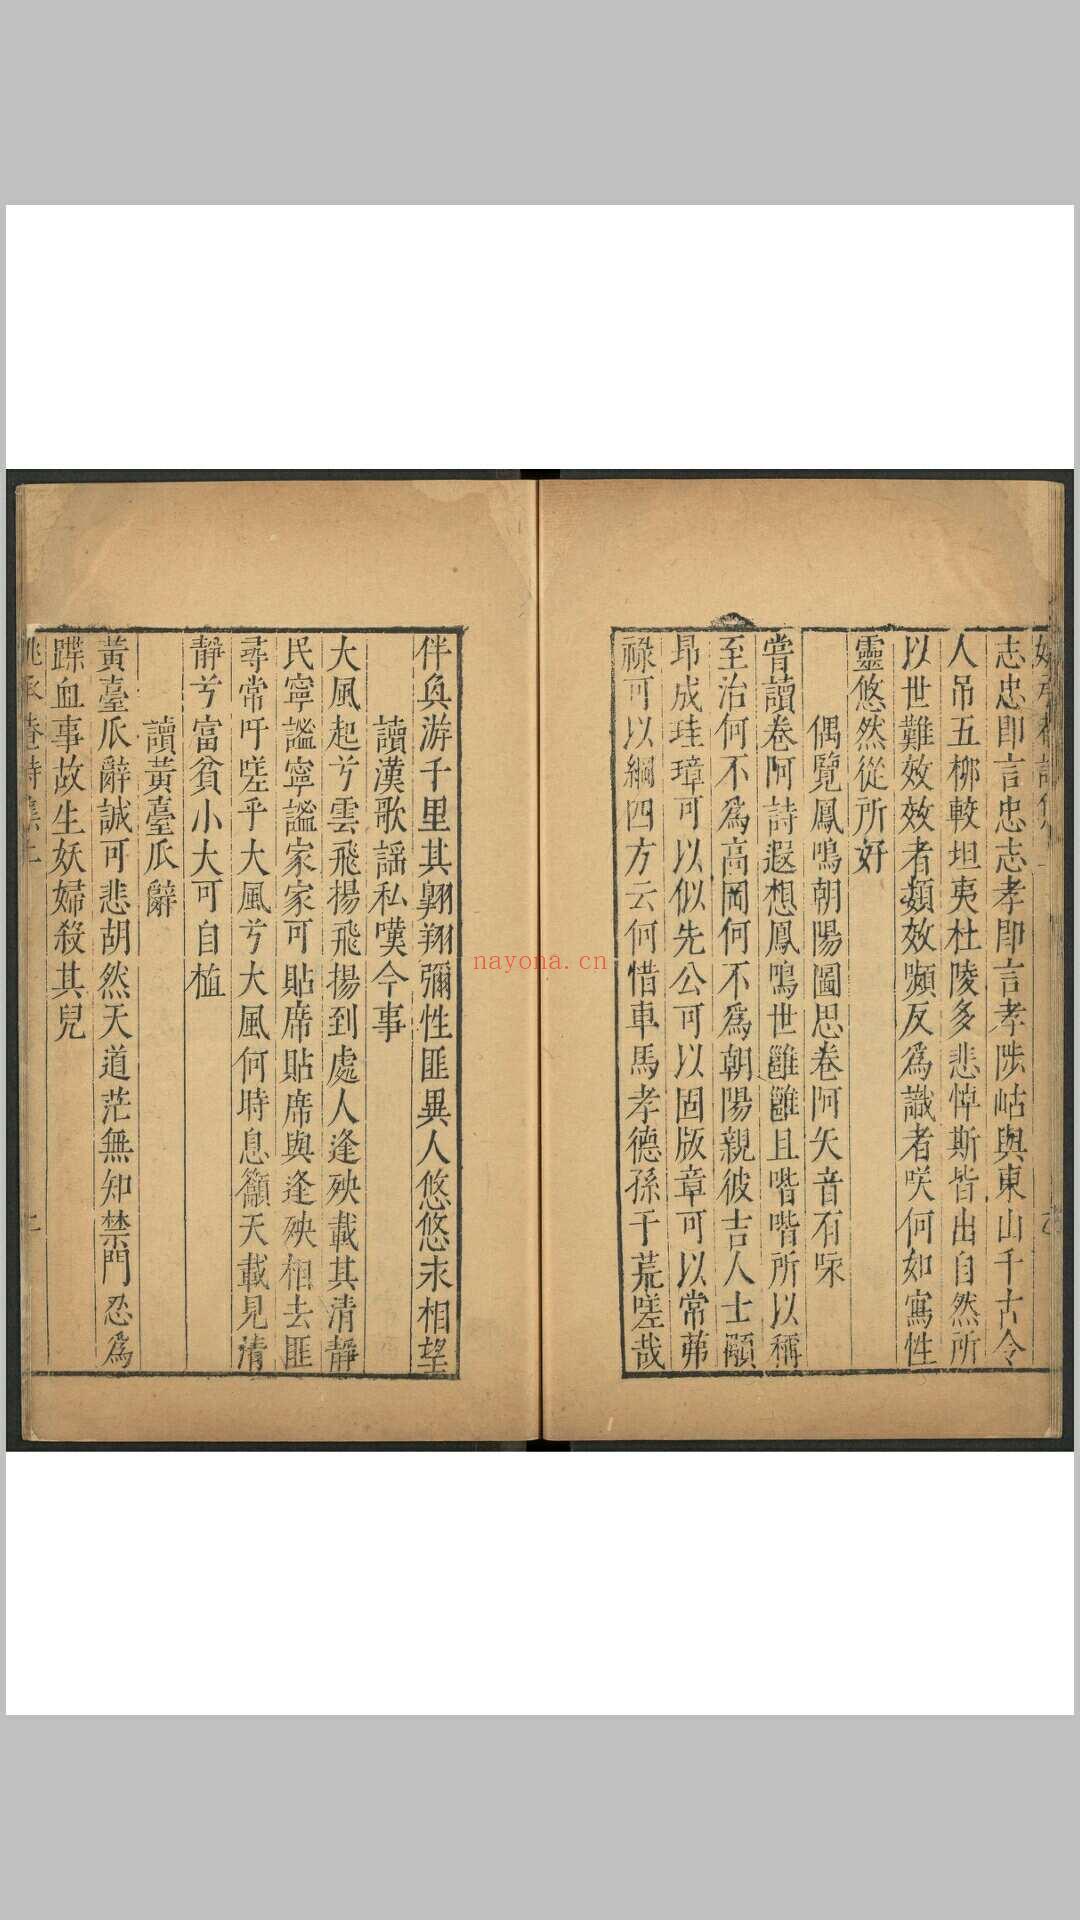 志忠即言忠志孝即言孝陟岵與東山千古令
人吊五柳較坦夷杜陵多悲悼斯皆出自然所
以世難效效者類效顰反為識者咲何如寫性
靈悠然從所好
偶覽鳳鳴朝陽圖思卷阿矢音有咏
嘗讀卷阿詩遐想鳳鳴世雝雝且喈喈所以稱
至治何不爲高岡何不爲朝陽親彼吉人士顒
昂成珪璋可以似先公可以固版章可以常茀
祿可以綱四方云何惜車馬孝德孫于荒嗟哉
伴奐游千里其翺翔彌性匪異人悠悠求相望
讀漢歌謡私嘆今事
大風起兮雲飛揚飛揚到處人逢殃載其清靜
民寧謐寧謐家家可貼席貼席與逢殃相去匪
尋常吁嗟乎大風兮大風何時息籲天載見清
靜兮富貧小大可自植
讀黃臺瓜辭
黃臺瓜辭誠可悲胡然天道茫無知禁門忍爲
蹀血事故生妖婦殺其兒
nayona.cn